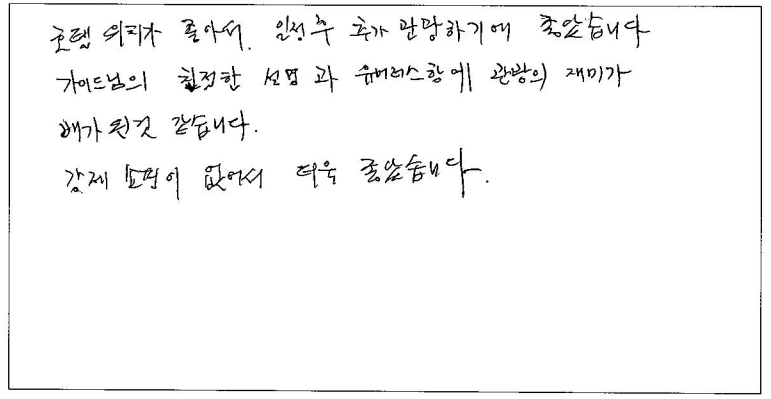 호텔 위치가 좋아서. 일정후 추가 관광하기에 좋았습니다
가이드님의 친절한 설명과 유머러스함에 관광의 재미가
배가 된것 같습니다.
강제 쇼핑이 없어서 더욱 좋았습니다.